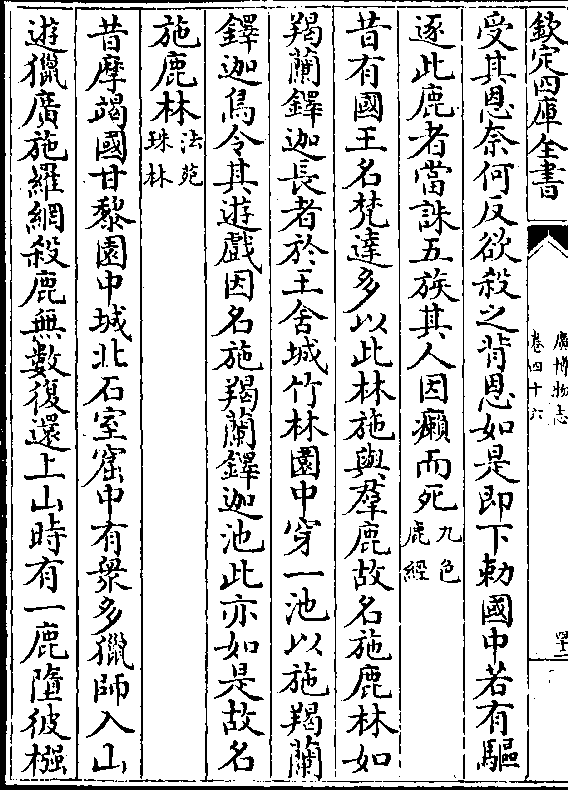 欽定四庫全書
廣博物志
卷四十六
受其恩奈何反欲殺之背恩如是即下勅國中若有驅
逐此鹿者當誅五族其人因癩而死九色
鹿經
昔有國王名梵達多以此林施與羣鹿故名施鹿林如
羯蘭鐸迦長者於王舍城竹林園中穿一池以施羯蘭
鐸迦鳥令其遊戲因名施羯蘭鐸迦池此亦如是故名
施鹿林法苑
珠林
昔摩竭國甘黎園中城北石室窟中有衆多獵師入山
遊獵廣施羅網殺鹿無數復還上山時有一鹿墮彼橃